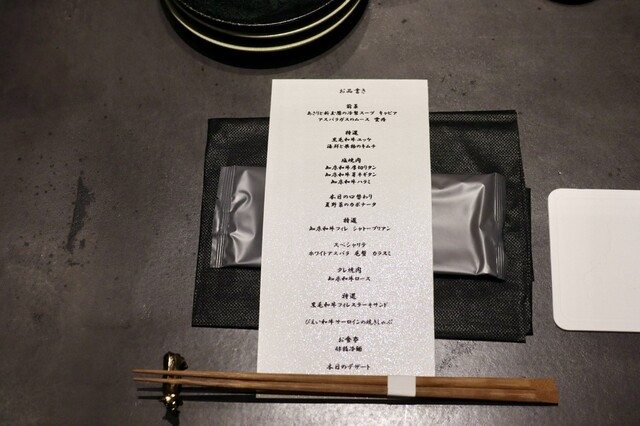 お品書き
前菜
あさりと新玉葱の冷製スープ キャビア
アスパラガスのムース 雲丹
特選
黒毛和牛ユッケ
海胆と果物のキムチ
塩焼肉
知床和牛厚切りタン
知床和牛ネギタン
知床和牛ハラミ
本日の口替わり
夏野菜のカポナータ
特選
知床和牛フィレ シャトーブリアン
スペシャリテ
ホワイトアスパラ 毛蟹 カラスミ
タレ焼肉
知床和牛ロース
特選
黒毛和牛フィレステーキサンド
びえい和牛サーロインの焼きしゃぶ
お食事
冷麺
本日のデザート